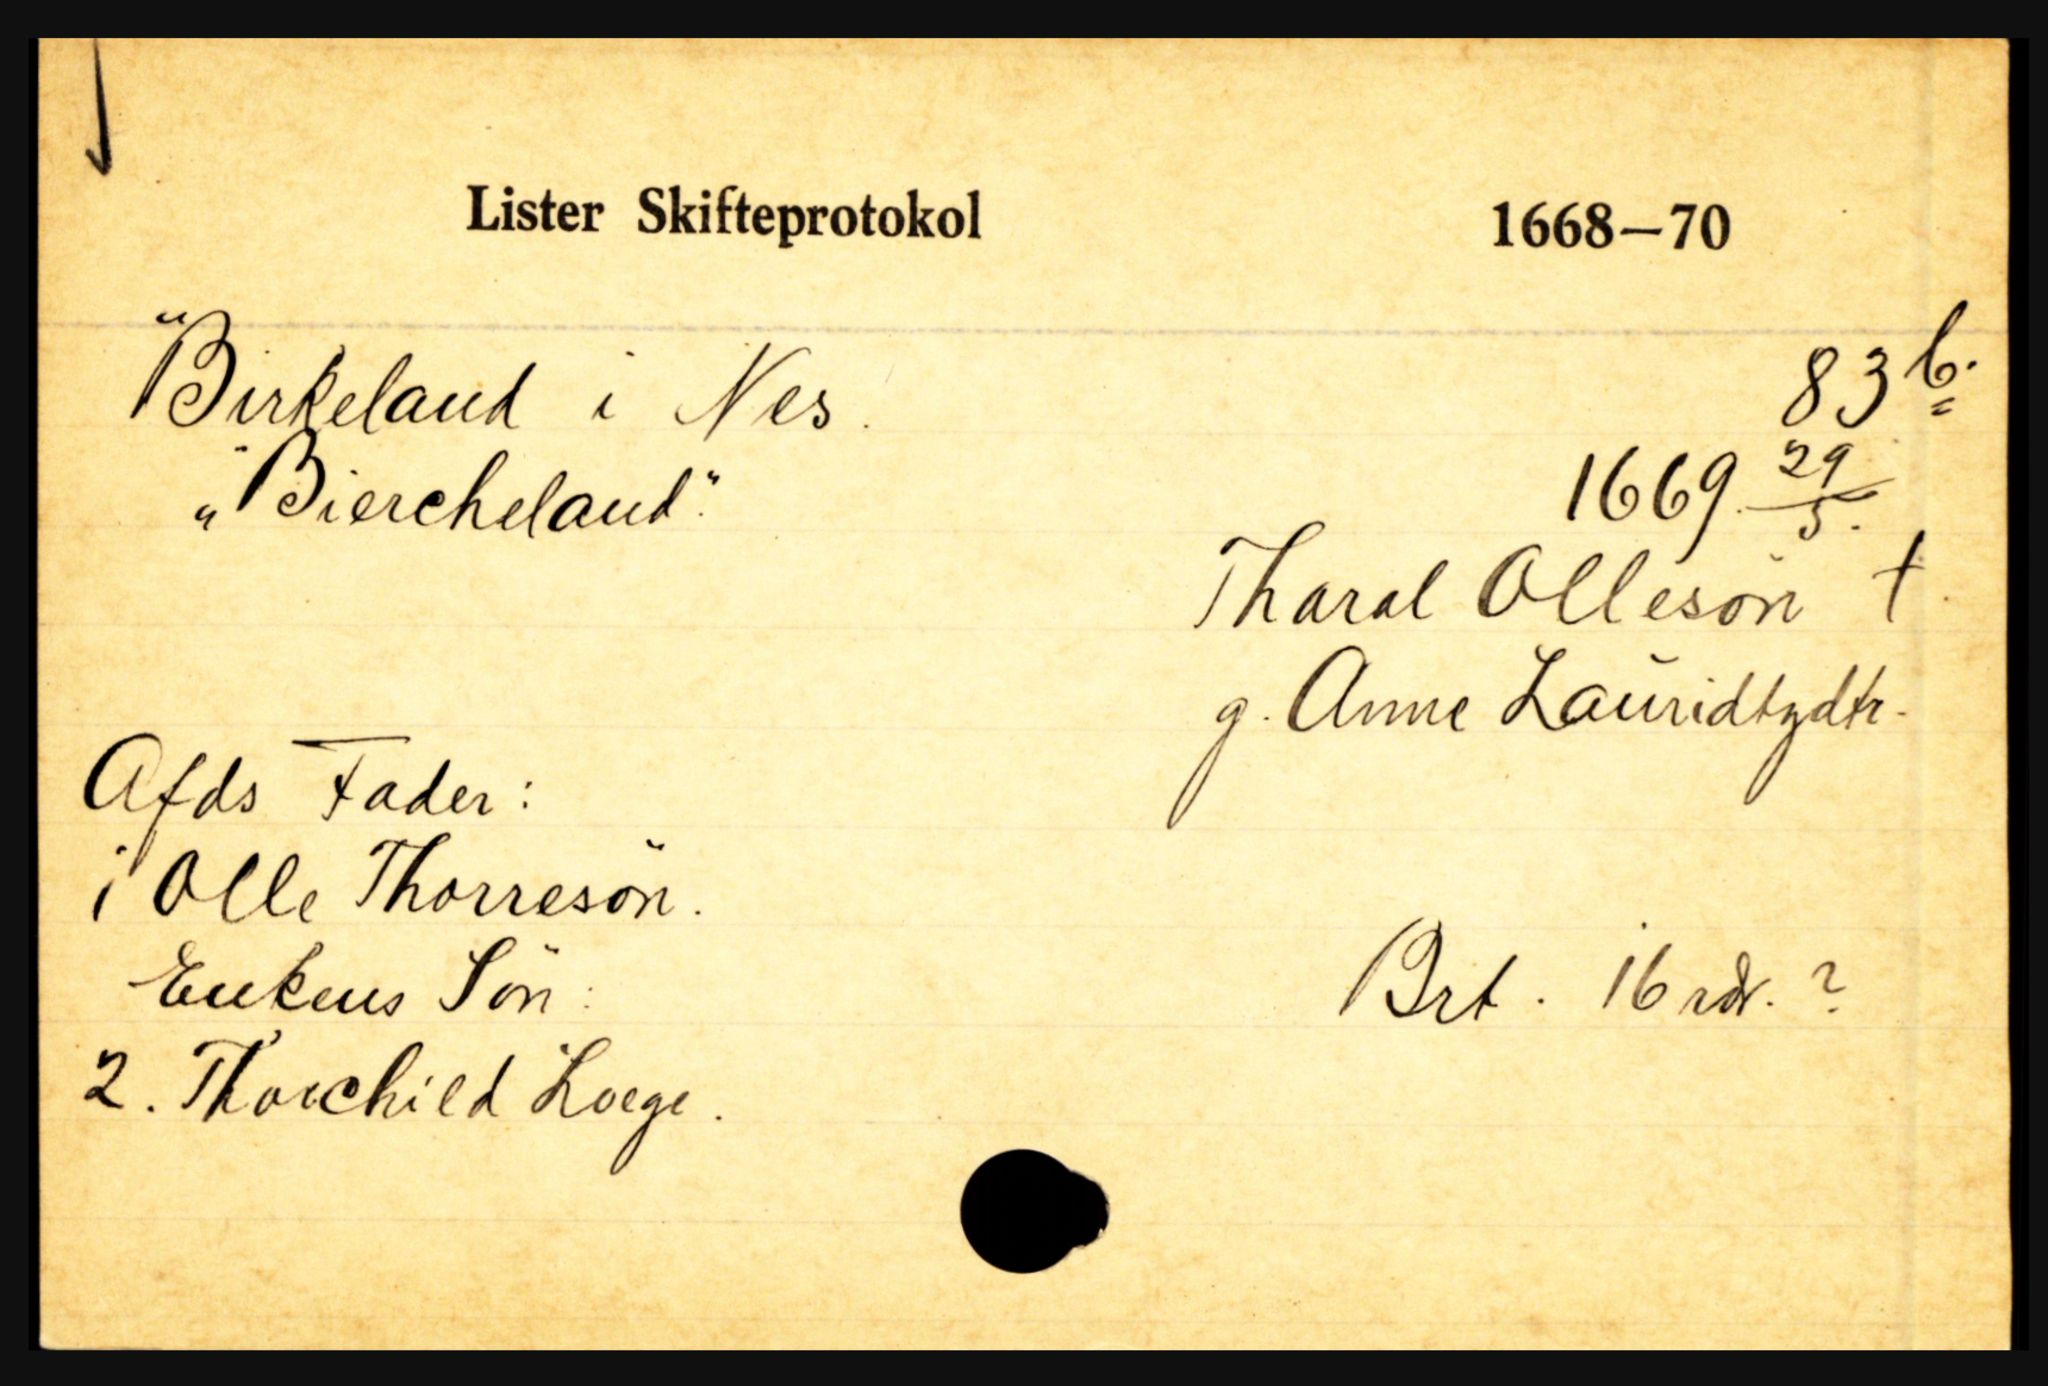 Lister Skifteprotokol 1668—70
"Birkeland i Nes. 83 b.
"Biercheland". 1669. 29/5.
Tharal Ollesön †
g. Anne Lauridtzdtr.
Afds Fader:
1 Olle Thorresön.
Enkens Sön: Brt. 16 rdr. ?
2. Thorchild Loege.